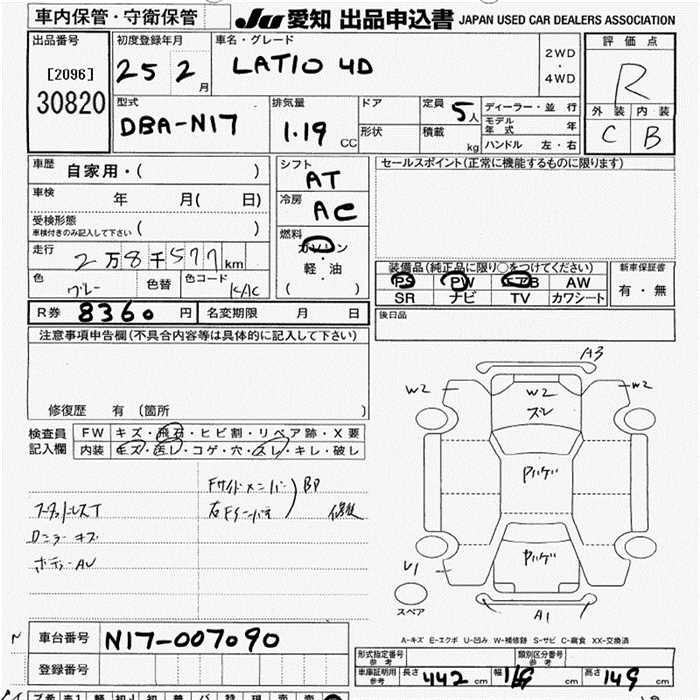 車内保管・守衛保管
JU 愛知 出品申込書 JAPAN USED CAR DEALERS ASSOCIATION
出品番号
[2096]
30820
初度登録年月
25 2月
車名・グレード
LATIO 4D
2WD
・
4WD
評価点
R
外装 内装
C B
型式
DBA-N17
排気量
1.19 CC
ドア
形状
定員 5人
積載 kg
ディーラー・並行
モデル年式 年
ハンドル 左・右
車歴 自家用・( )
車検 年 月( 日)
受検形態
車検付きのみ記入して下さい ( )
走行 2万8千577km
色 グレー 色替 色コード KAC
シフト AT
冷房 AC
燃料
ガソリン
・
軽・油
( )
セールスポイント(正常に機能するものに限ります)
装備品(純正品に限り○をつけてください)
PS PW エアB AW
SR ナビ TV カワシート
新車保証書
有・無
後日品
R券 8360円 名変期限 月 日
注意事項申告欄(不具合内容等は具体的に記入して下さい)
修復歴 有 (箇所 )
検査員記入欄
FW キズ・飛石・ヒビ割・リペア跡・X要
内装 キズ・汚レ・コゲ・穴・スレ・キレ・破レ
Fサイドメンバー
右Fインパネ
BP
修復
スタッドレスT
ロニラーキズ
ボディーAU
A3
W2
W2
W2
ズレ
V1
A1
スペア
A-キズ E-エクボ U-凹み W-補修跡 S-サビ C-腐食 XX-交換済
車台番号 N17-007090
登録番号
形式指定番号 参考
類別区分番号 参考
車庫証明用 参考
長さ 442 cm 幅 169 cm 高さ 149 cm